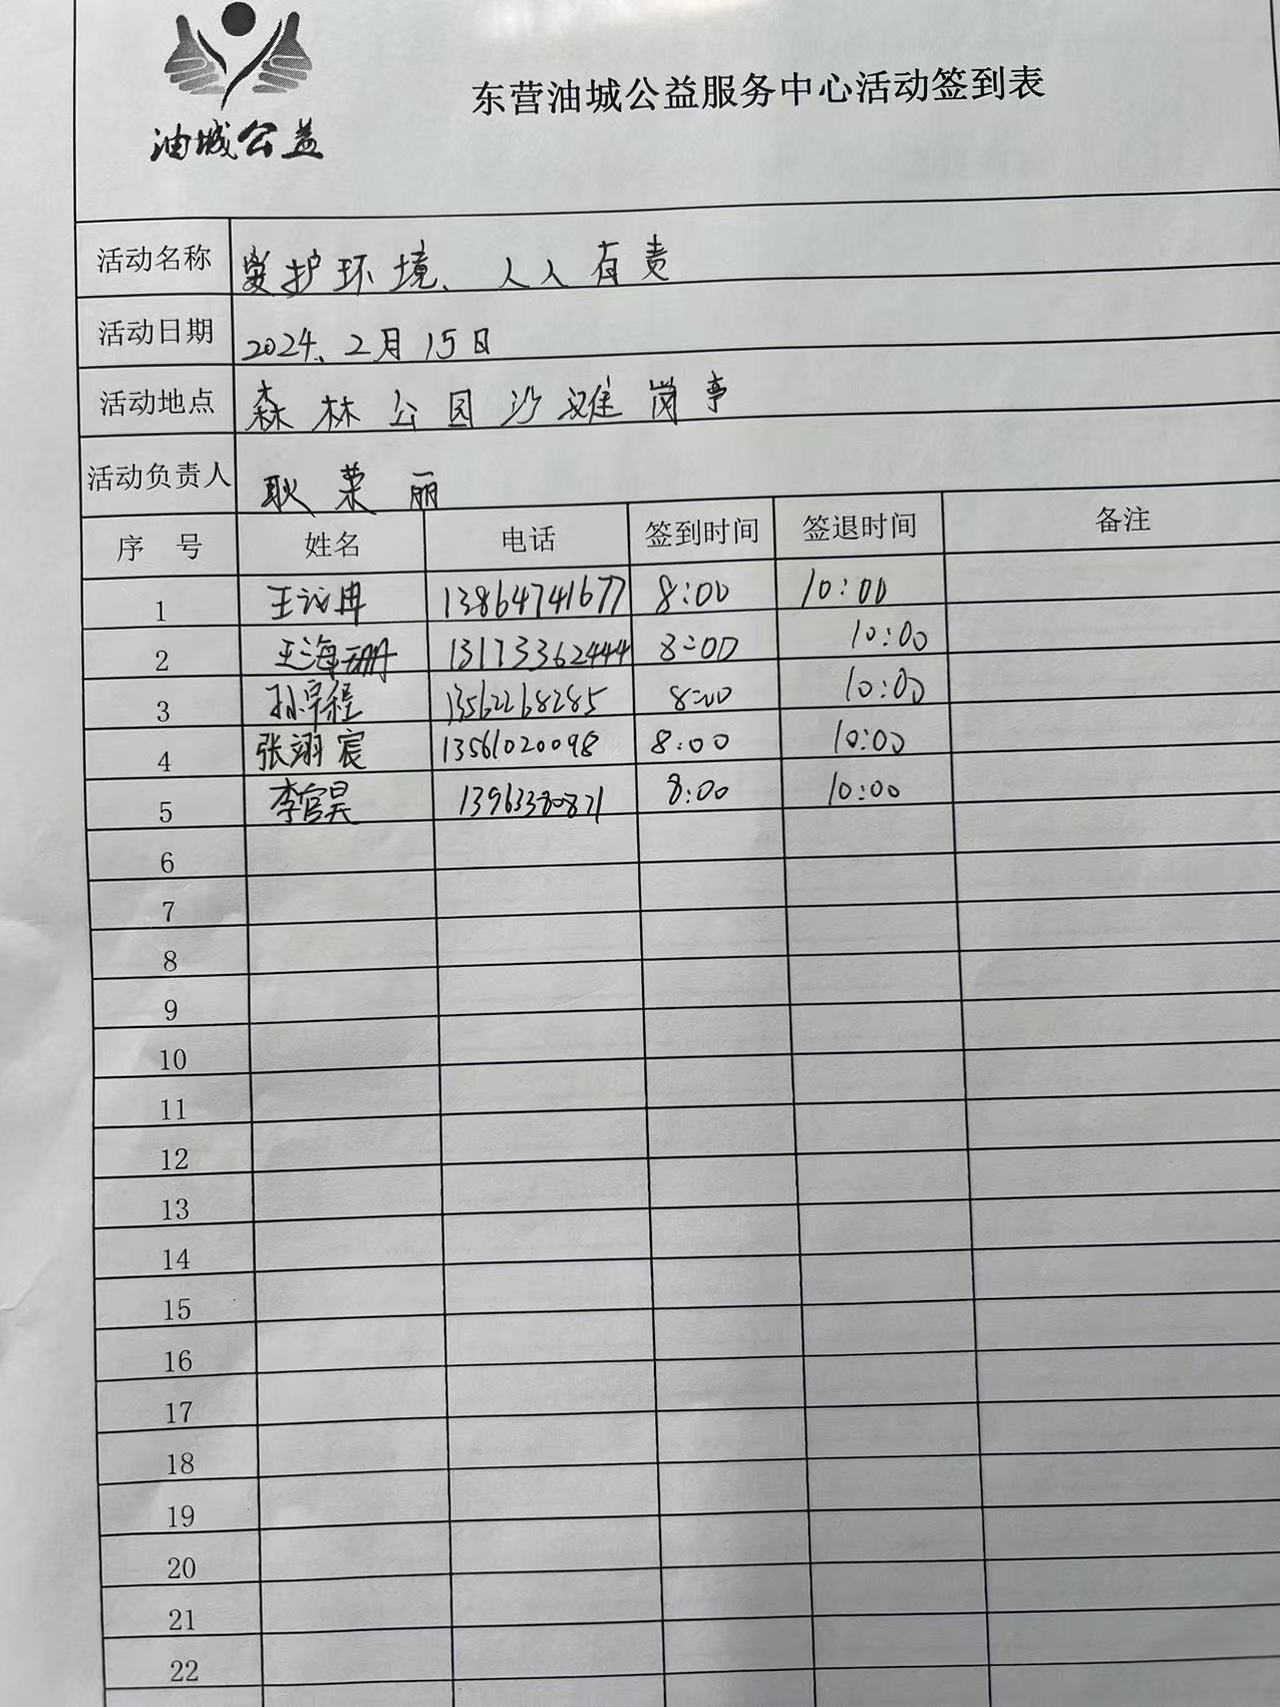 油城公益
东营油城公益服务中心活动签到表
活动名称 爱护环境、人人有责
活动日期 2024、2月15日
活动地点 森林公园沙滩岗亭
活动负责人 耿荣丽
序 号 姓名 电话 签到时间 签退时间 备注
1 王 冉 13864741677 8:00 10:00
2 王海珊 13173362444 8:00 10:00
3 孙 程 13562268285 8:00 10:00
4 张翊宸 13561020098 8:00 10:00
5 李官昊 13963380871 8:00 10:00
6
7
8
9
10
11
12
13
14
15
16
17
18
19
20
21
22